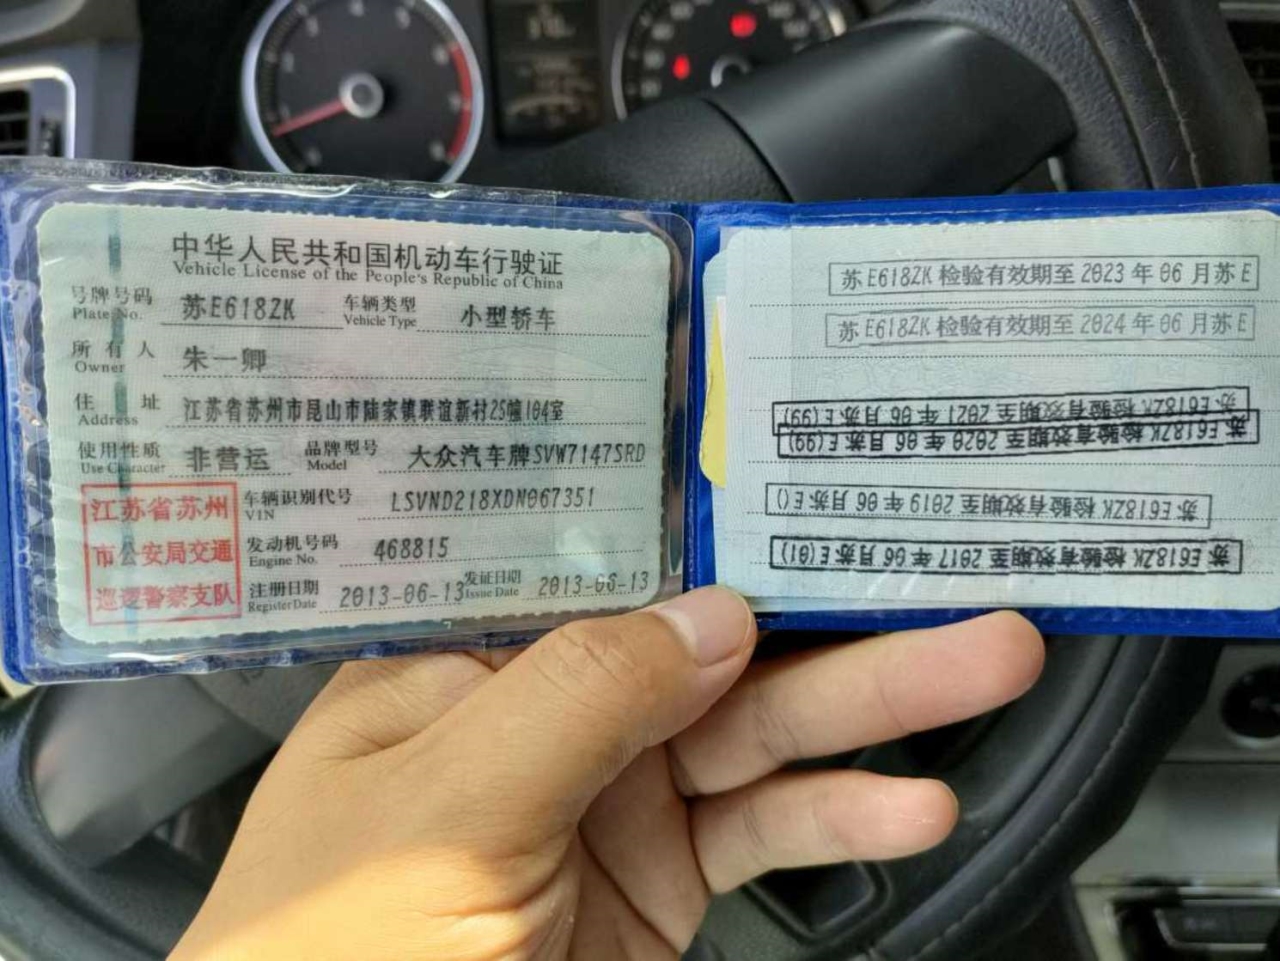 中华人民共和国机动车行驶证
Vehicle License of the People's Republic of China
号牌号码 苏E618ZK 车辆类型 小型轿车
Plate No. Vehicle Type
所有人 朱一卿
Owner
住址 江苏省苏州市昆山市陆家镇联谊新村25幢104室
Address
使用性质 非营运 品牌型号 大众汽车牌SVW7147SRD
Use Character Model
江苏省苏州
市公安局交通
巡逻警察支队
车辆识别代号 LSVND218XDN067351
VIN
发动机号码 468815
Engine No.
注册日期 2013-06-13 发证日期 2013-06-13
Register Date Issue Date
苏E618ZK检验有效期至2023年06月苏E
苏E618ZK检验有效期至2024年06月苏E
苏E618ZK检验有效期至2021年06月苏E(99)
苏E618ZK检验有效期至2020年06月苏E(99)
苏E618ZK检验有效期至2019年06月苏E()
苏E618ZK检验有效期至2017年06月苏E(01)